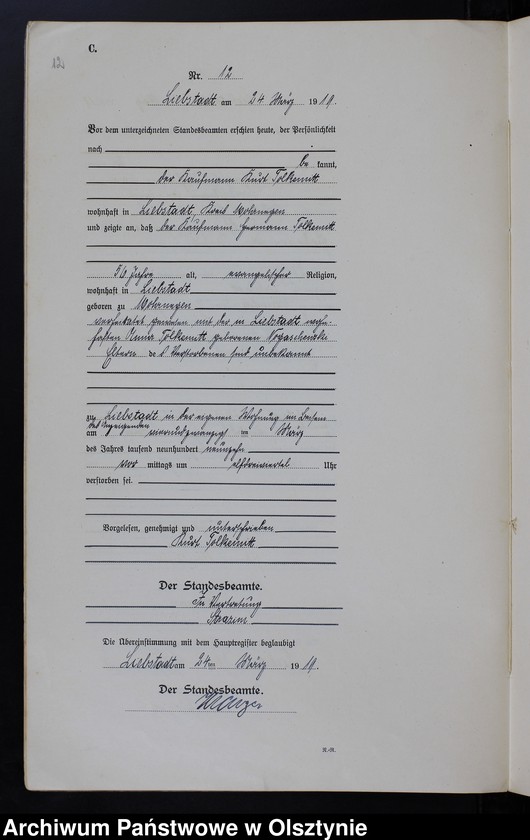 C.
12
Nr. 12
Liebstadt am 24 März 1919.
Vor dem unterzeichneten Standesbeamten erschien heute, der Persönlichkeit
nach
be kannt,
der Kaufmann Kurt Tolksmitt
wohnhaft in Liebstadt, Kreis Mohrungen
und zeigte an, daß der Kaufmann Hermann Tolksmitt
56 Jahre alt, evangelischer Religion,
wohnhaft in Liebstadt
geboren zu Mohrungen
verheiratet gewesen mit der in Liebstadt wohn-
haften Anna Tolksmitt geborenen
Eltern des Verstorbenen sind unbekannt
zu Liebstadt in der eigenen Wohnung im Beisein
des Anzeigenden
am vierundzwanzigsten März
des Jahres tausend neunhundert neunzehn
vor mittags um elfdreiviertel Uhr
verstorben sei.
Vorgelesen, genehmigt und unterschrieben
Kurt Tolksmitt
Der Standesbeamte.
In Vertretung
Die Übereinstimmung mit dem Hauptregister beglaubigt
Liebstadt am 24ten März 1919.
Der Standesbeamte.
R.-R.
Archiwum Państwowe w Olsztynie